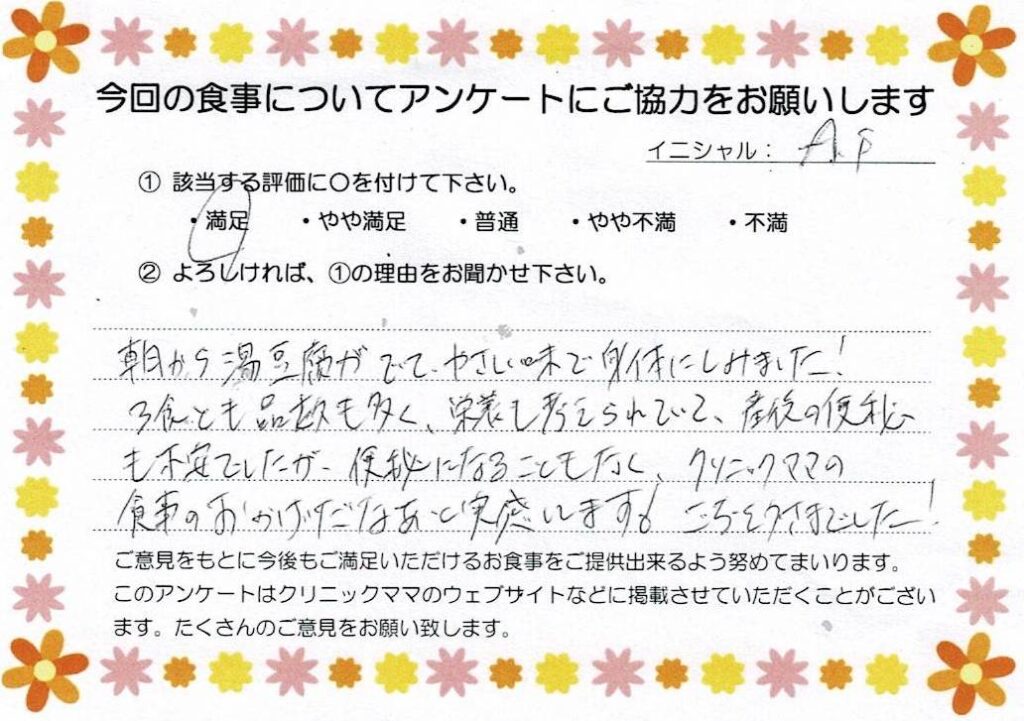 今回の食事についてアンケートにご協力をお願いします
イニシャル： A.F
① 該当する評価に〇を付けて下さい。
・満足 ・やや満足 ・普通 ・やや不満 ・不満
② よろしければ、①の理由をお聞かせ下さい。
朝から湯豆腐がでて、やさしい味で身体にしみました！
3食とも品数も多く、栄養も考えられていて、産後の便秘
も不安でしたが、便秘になることもなく、クリニックママの
食事のおかげだなぁと実感します！ごちそうさまでした！
ご意見をもとに今後もご満足いただけるお食事をご提供出来るよう努めてまいります。
このアンケートはクリニックママのウェブサイトなどに掲載させていただくことがござい
ます。たくさんのご意見をお願い致します。